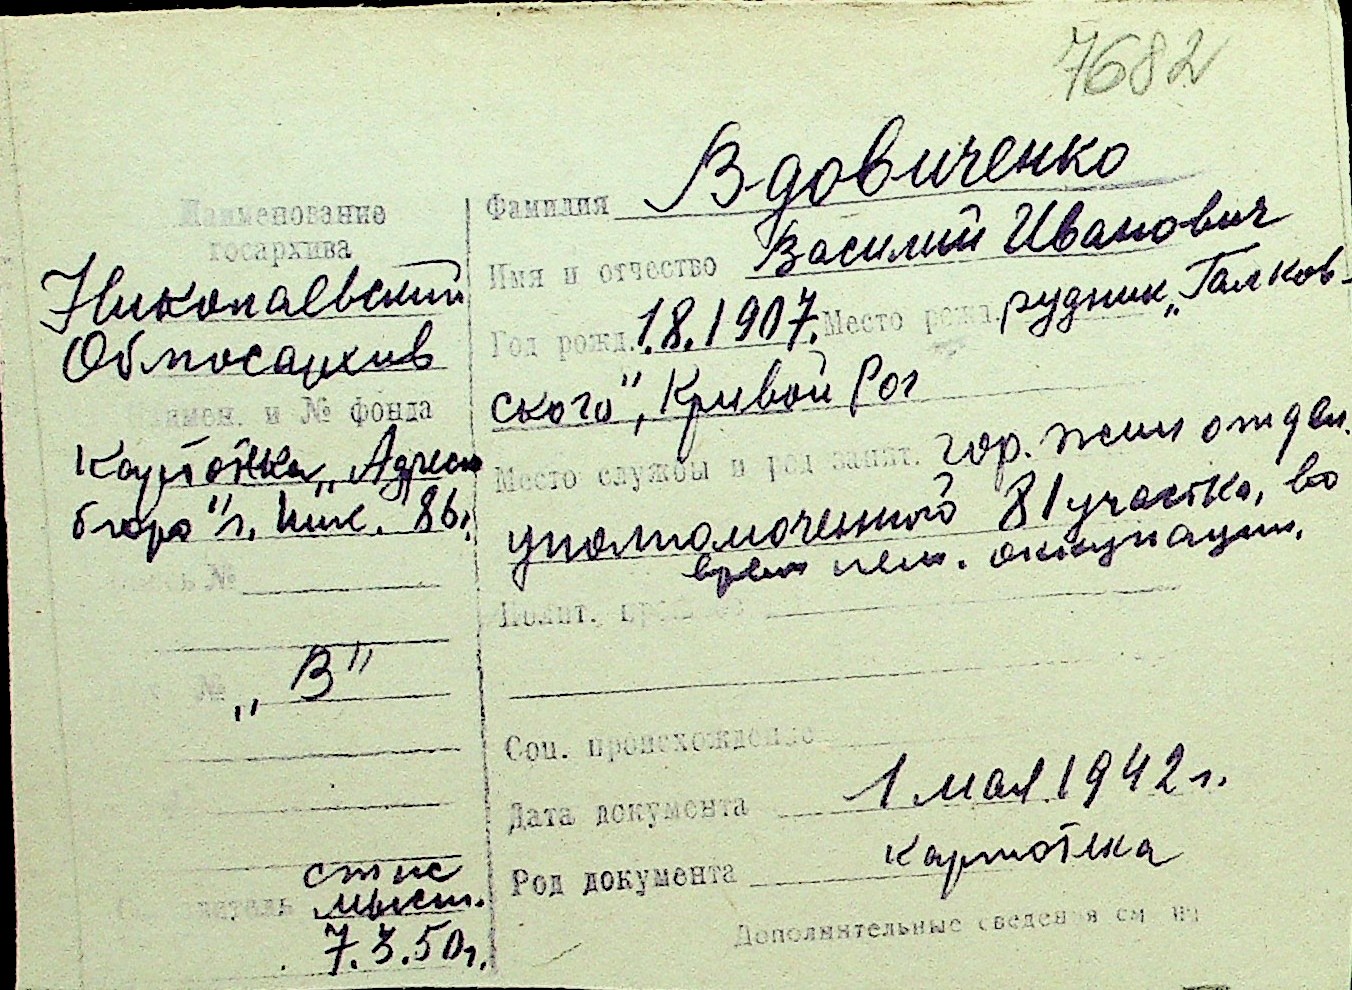 7682
Наименование
госархива
Николаевский
Облгосархив
Наимен. и № фонда
Картотка „Адресн
бюро" г. Ник. 86.
Опись №
№ „В"
7.3.50г.
Фамилия Вдовиченко
Имя и отчество Василий Иванович
Год рожд. 1.8.1907. Место рожд. рудник „Галков-
ского", Кривой Рог
Место службы и род занят. гор. жил отдел.
уполномоченного 81 участка, во
время нем. оккупации.
Полит. прошлое
Соц. происхождение
Дата документа 1 мая 1942 г.
Род документа картотека
Дополнительные сведения см. на